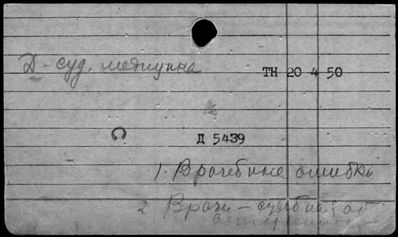 Д - суд. медицина
ТН 20 4 50
Д 5439
1. Врачебные ошибки
2 Врачи - судебная